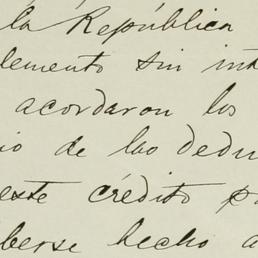 la República
lemento sin int
acordaron los
io de las dedu
este crédito p
berse hecho a